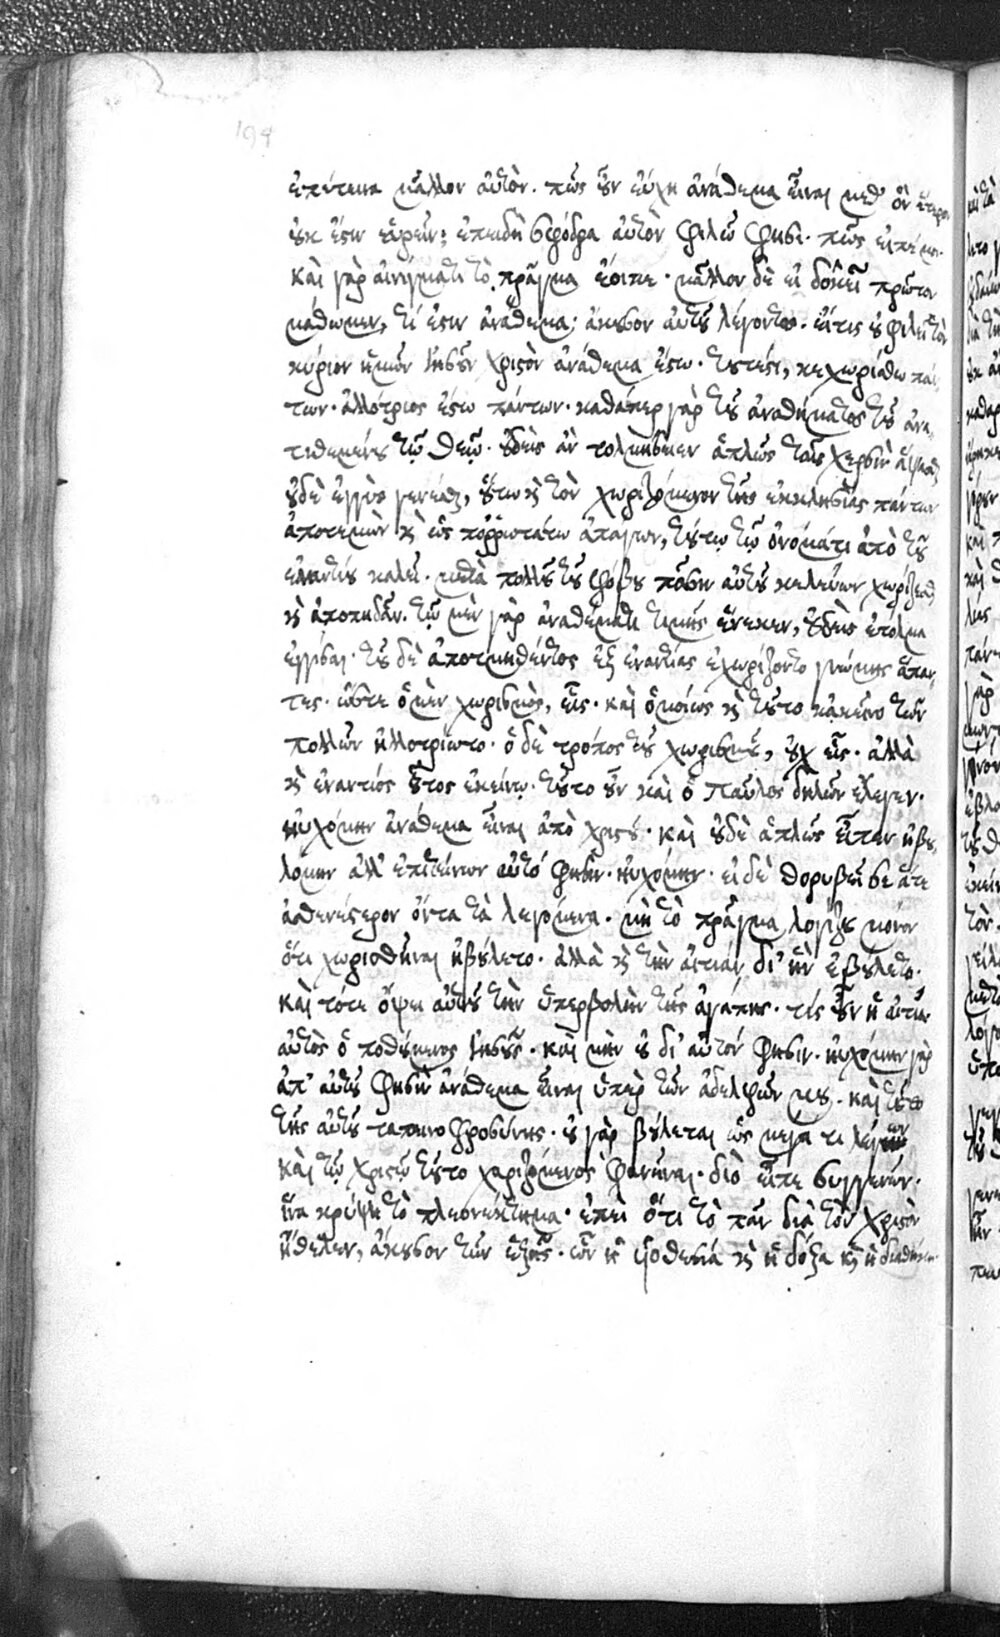 194
ἐπέτεινα μᾶλλον αὐτόν. πῶς οὖν εὔχῃ ἀνάθεμα εἶναι μεθ' ὃν ἕτερον
οὐκ ἔστιν εὑρεῖν; ἐπειδὴ σφόδρα αὐτὸν φιλῶ φησί. πῶς εἰπέ μοι.
καὶ γὰρ αἰνίγματι τὸ πρᾶγμα ἔοικε. μᾶλλον δὲ εἰ δοκεῖ πρῶτον
μάθωμεν, τί ἐστιν ἀνάθεμα; ἄκουσον αὐτοῦ λέγοντος. εἴ τις οὐ φιλεῖ τὸν
κύριον ἡμῶν ἰησοῦν χριστὸν ἀνάθεμα ἔστω. τουτέστι, κεχωρίσθω πάν
των. ἀλλότριος ἔστω πάντων. καθάπερ γὰρ τοῦ ἀναθήματος τοῦ ἀνα
τιθεμένου τῷ θεῷ. οὐδεὶς ἂν τολμήσειεν ἁπλῶς ταῖς χερσὶν ἅψασθαι
οὐδὲ ἐγγὺς γενέσθαι, οὕτω καὶ τὸν χωριζόμενον τῆς ἐκκλησίας πάντων
ἀποτεμὼν καὶ ὡς πορρωτάτω ἀπάγων, τούτῳ τῷ ὀνόματι ἀπὸ τοῦ
ἐναντίου καλεῖ. μετὰ πολλοῦ τοῦ φόβου πᾶσιν αὐτοῦ κελεύων χωρίζεσθαι
καὶ ἀποπηδᾶν. τῷ μὲν γὰρ ἀναθέματι τιμῆς ἕνεκεν, οὐδεὶς ἐτόλμα
ἐγγίσαι. τοῦ δὲ ἀποτμηθέντος ἐξ ἐναντίας ἐχωρίζοντο γνώμης ἅπαν
τες. ὥστε ὁ μὲν χωρισμὸς, εἷς. καὶ ὁμοίως καὶ τοῦτο κἀκεῖνο τῶν
πολλῶν ἠλλοτρίωτο. ὁ δὲ τρόπος τοῦ χωρισμοῦ, οὐχ εἷς. ἀλλὰ
καὶ ἐναντίος οὗτος ἐκείνῳ. τοῦτο οὖν καὶ ὁ παῦλος δηλῶν ἔλεγεν.
ηὐχόμην ἀνάθεμα εἶναι ἀπὸ χριστοῦ. καὶ οὐδὲ ἁπλῶς εἶπεν ἠβου
λόμην ἀλλ' ἐπιτείνων αὐτό φησιν. ηὐχόμην. εἰ δὲ θορυβεῖ σε ἅτε
ἀσθενέστερον ὄντα τὰ λεγόμενα. μὴ τὸ πρᾶγμα λογίζου μόνον
ὅτι χωρισθῆναι ἠβούλετο. ἀλλὰ καὶ τὴν αἰτίαν δι' ἣν ἐβούλετο.
καὶ τότε ὄψει αὐτοῦ τὴν ὑπερβολὴν τῆς ἀγάπης. τίς οὖν ἡ αἰτία.
αὐτὸς ὁ ποθούμενος ἰησοῦς. καὶ μὴν οὐ δι' αὐτόν φησιν. ηὐχόμην γὰρ
ἀπ' αὐτοῦ φησὶν ἀνάθεμα εἶναι ὑπὲρ τῶν ἀδελφῶν μου. καὶ τοῦτο
τῆς αὐτοῦ ταπεινοφροσύνης. οὐ γὰρ βούλεται ὡς μέγα τι λέγων
καὶ τῷ χριστῷ τοῦτο χαριζόμενος φανῆναι. διὸ εἶπε συγγενῶν.
ἵνα κρύψῃ τὸ πλεονέκτημα. ἐπεὶ ὅτι τὸ πᾶν διὰ τὸν χριστὸν
ἤθελεν, ἄκουσον τῶν ἑξῆς. ὧν ἡ υἱοθεσία καὶ ἡ δόξα καὶ ἡ διαθήκη